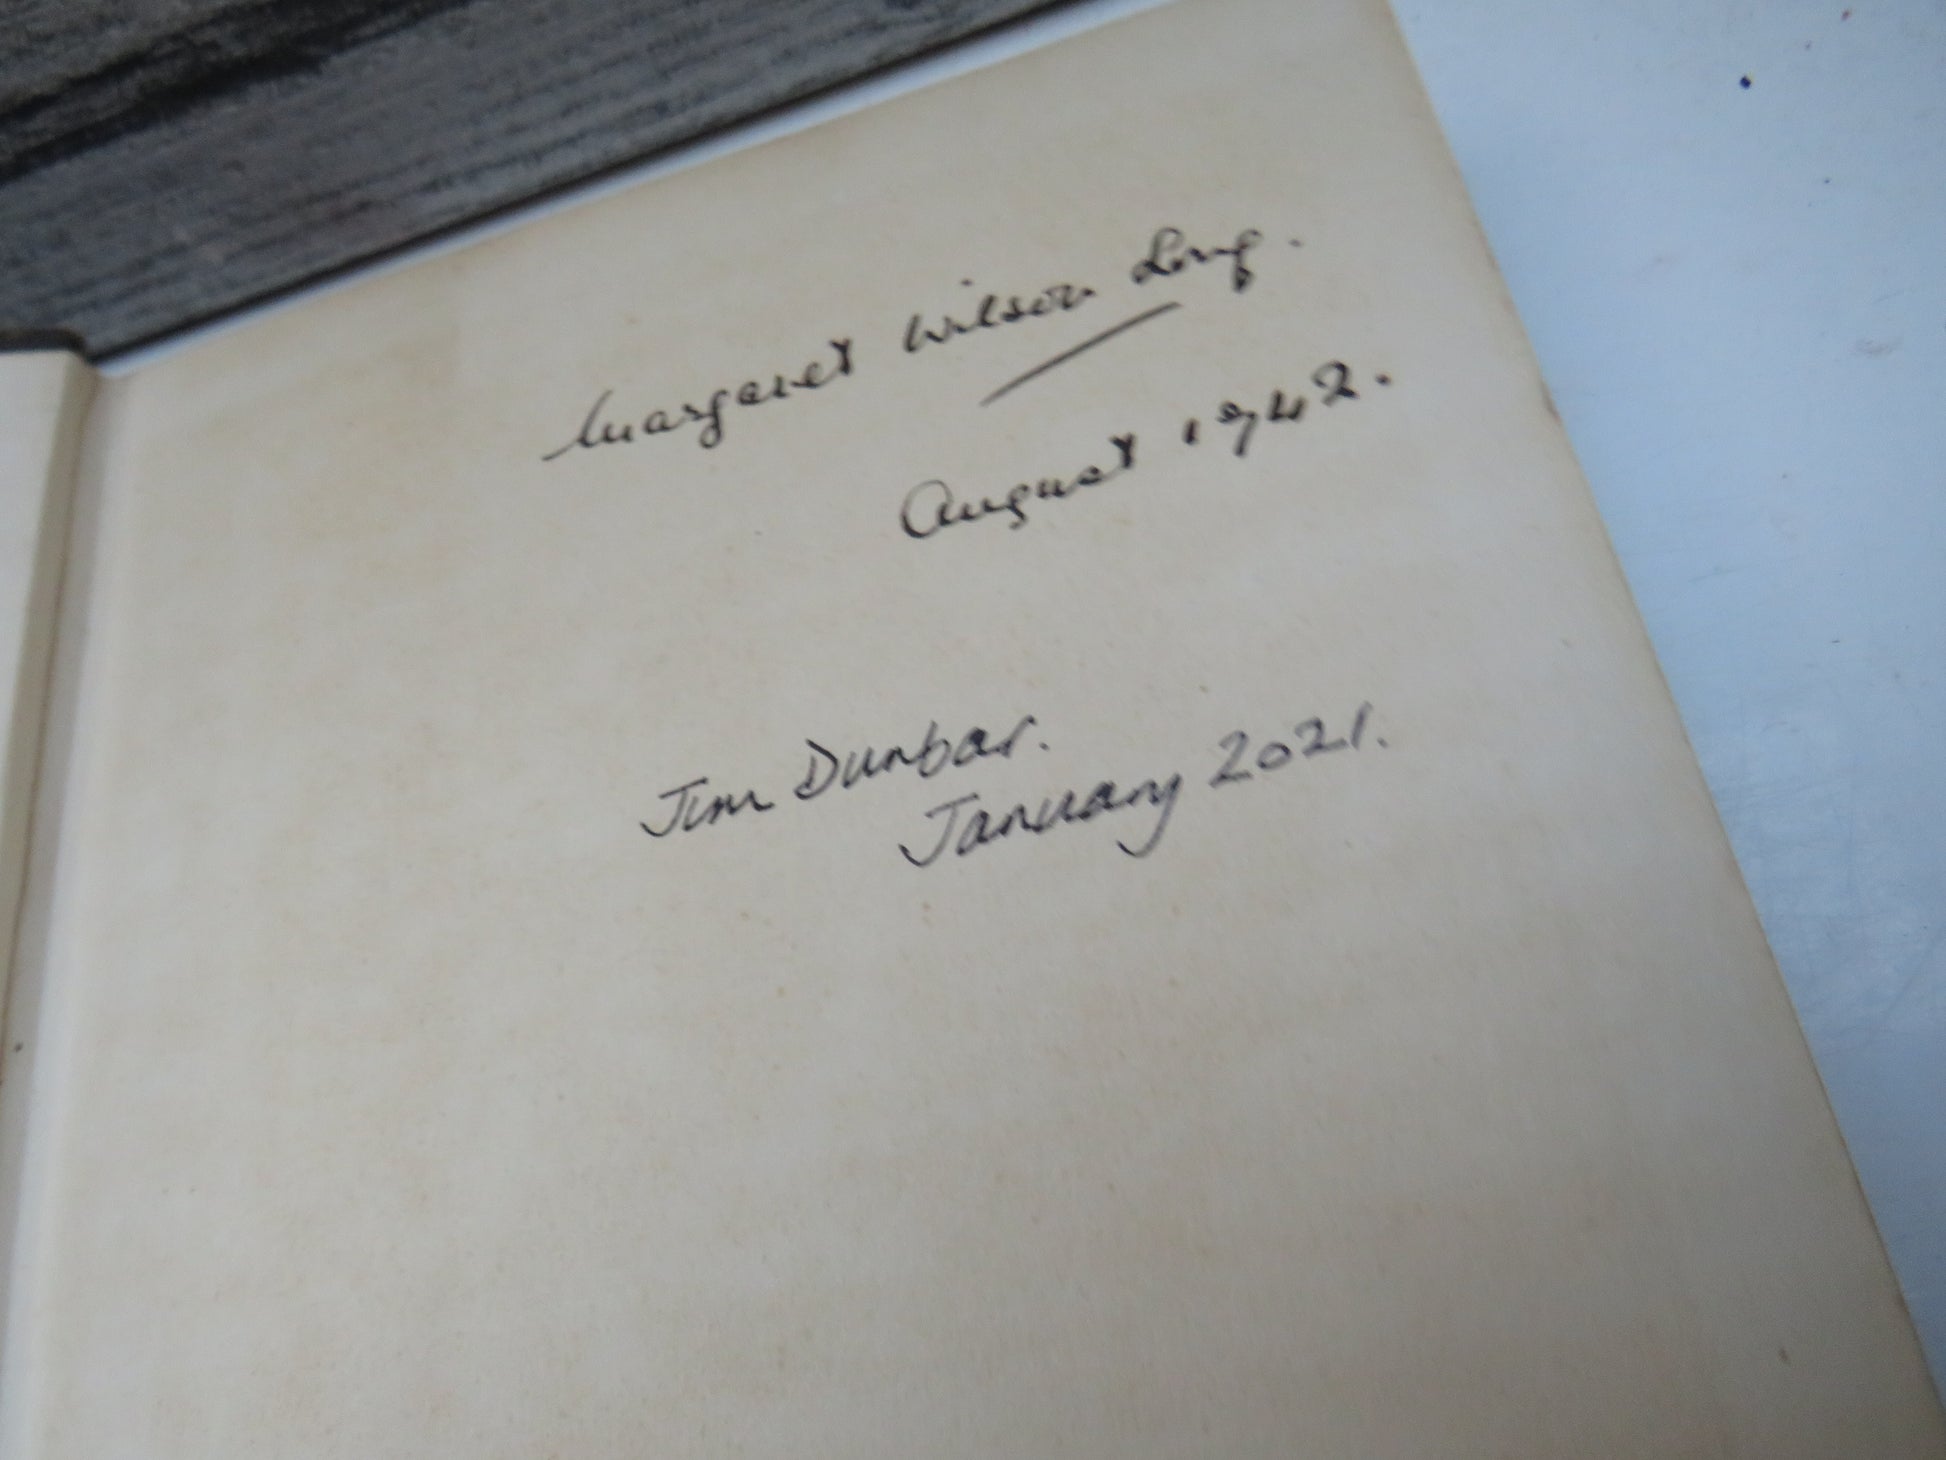 Margaret Wilson Long.
August 1942.
Jim Dunbar.
January 2021.